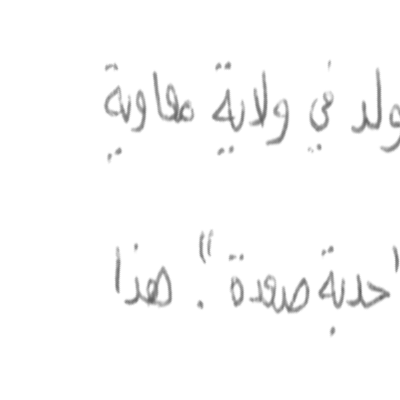 ولد في ولاية معاوية
حدبة صعدة". هذا